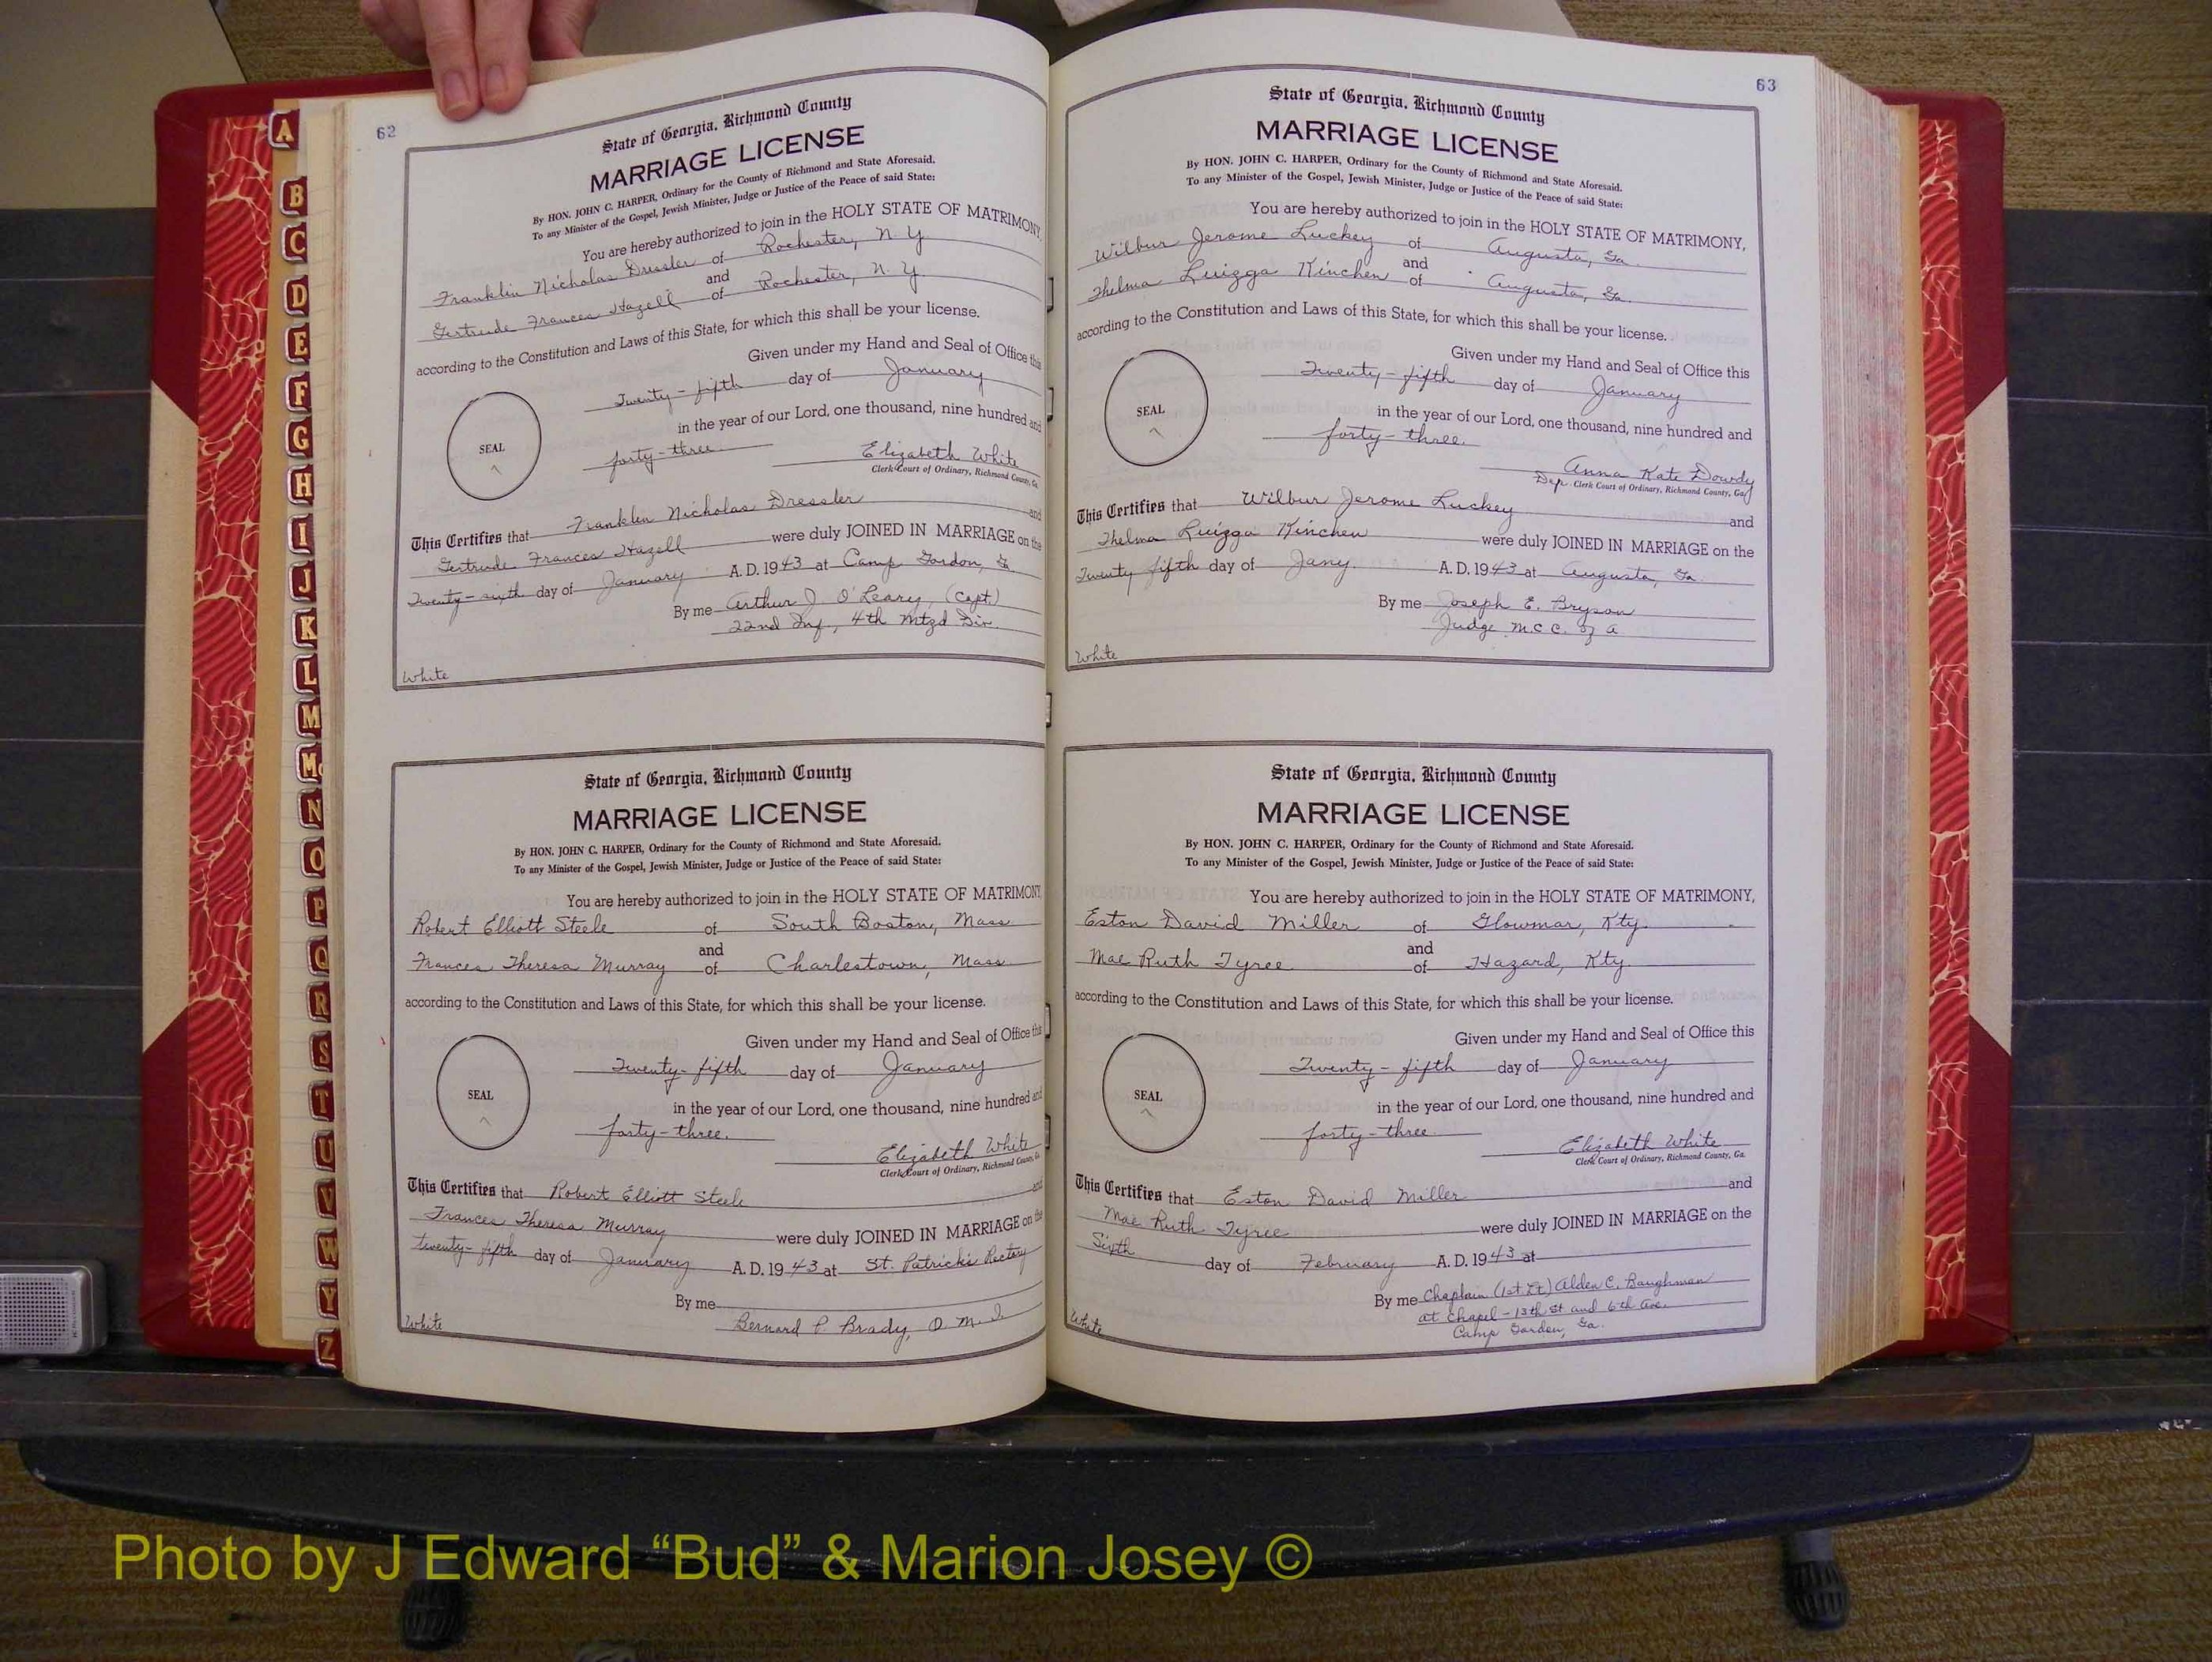 A
B
C
D
E
F
G
H
I
J
K
L
M
Mc
N
O
P
Q
R
S
T
U
V
W
Y
Z
62
State of Georgia, Richmond County
MARRIAGE LICENSE
By HON. JOHN C. HARPER, Ordinary for the County of Richmond and State Aforesaid.
To any Minister of the Gospel, Jewish Minister, Judge or Justice of the Peace of said State:
You are hereby authorized to join in the HOLY STATE OF MATRIMONY,
Franklin Nicholas Dressler of Rochester, N. Y.
and
Gertrude Frances Hazell of Rochester, N. Y.
according to the Constitution and Laws of this State, for which this shall be your license.
Given under my Hand and Seal of Office this
Twenty-fifth day of January
in the year of our Lord, one thousand, nine hundred and
SEAL
forty-three. Elizabeth White
Clerk Court of Ordinary, Richmond County, Ga.
This Certifies that Franklin Nicholas Dressler and
Gertrude Frances Hazell were duly JOINED IN MARRIAGE on the
Twenty-sixth day of January A. D. 1943 at Camp Gordon, Ga.
By me Arthur J O'Leary, (Capt.)
22nd Inf., 4th Mtzd Div.
White
State of Georgia, Richmond County
MARRIAGE LICENSE
By HON. JOHN C. HARPER, Ordinary for the County of Richmond and State Aforesaid.
To any Minister of the Gospel, Jewish Minister, Judge or Justice of the Peace of said State:
You are hereby authorized to join in the HOLY STATE OF MATRIMONY,
Robert Elliott Steele of South Boston, Mass
and
Frances Theresa Murray of Charlestown, Mass.
according to the Constitution and Laws of this State, for which this shall be your license.
Given under my Hand and Seal of Office this
Twenty-fifth day of January
SEAL
in the year of our Lord, one thousand, nine hundred and
forty-three. Elizabeth White
Clerk Court of Ordinary, Richmond County, Ga.
This Certifies that Robert Elliott Steele and
Frances Theresa Murray were duly JOINED IN MARRIAGE on the
twenty-fifth day of January A. D. 1943 at St. Patrick's Rectory
By me
Bernard P. Brady, O. M. I.
White
63
State of Georgia, Richmond County
MARRIAGE LICENSE
By HON. JOHN C. HARPER, Ordinary for the County of Richmond and State Aforesaid.
To any Minister of the Gospel, Jewish Minister, Judge or Justice of the Peace of said State:
You are hereby authorized to join in the HOLY STATE OF MATRIMONY,
Wilbur Jerome Luckey of Augusta, Ga.
and
Thelma Luizga Kinchen of Augusta, Ga.
according to the Constitution and Laws of this State, for which this shall be your license.
Given under my Hand and Seal of Office this
Twenty-fifth day of January
SEAL
in the year of our Lord, one thousand, nine hundred and
forty-three.
Anna Kate Dowdy
Dep. Clerk Court of Ordinary, Richmond County, Ga.
This Certifies that Wilbur Jerome Luckey and
Thelma Luizga Kinchen were duly JOINED IN MARRIAGE on the
Twenty fifth day of Jany. A. D. 1943 at Augusta, Ga.
By me Joseph E. Bryson
Judge M C C. of A
White
State of Georgia, Richmond County
MARRIAGE LICENSE
By HON. JOHN C. HARPER, Ordinary for the County of Richmond and State Aforesaid.
To any Minister of the Gospel, Jewish Minister, Judge or Justice of the Peace of said State:
You are hereby authorized to join in the HOLY STATE OF MATRIMONY,
Eston David Miller of Glowmar, Kty.
and
Mae Ruth Tyree of Hazard, Kty.
according to the Constitution and Laws of this State, for which this shall be your license.
Given under my Hand and Seal of Office this
Twenty-fifth day of January
SEAL
in the year of our Lord, one thousand, nine hundred and
forty-three. Elizabeth White
Clerk Court of Ordinary, Richmond County, Ga.
This Certifies that Eston David Miller and
Mae Ruth Tyree were duly JOINED IN MARRIAGE on the
Sixth day of February A. D. 1943 at
By me Chaplain (1st Lt) Alden C. Baughman
at Chapel - 13th St and 6th Ave.
Camp Gordon, Ga.
White
Photo by J Edward “Bud” & Marion Josey ©